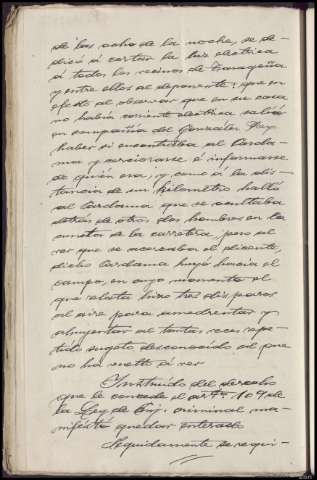 de las ocho de la noche, se de-
dicó a cortar la luz electrica
á todos los vecinos de
y entre ellos al deponente; que en
efecto al observar que en su casa
no habia corriente electrica salió
en compañia de González Rey
haber si encontraba al Carda-
ma y cerciorarse é informarse
de quién era, y como á la dis-
tancia de un kilometro halló
al Cardama que se ocultaba
detrás de otro, dos hombres en la
cuneta de la carretera, pero al
ver que se acercaba el dicente,
dicho Cardama huyó hacia el
campo, en cuyo momento el
que relata hizo tres disparos
al aire para amedrentar y
ahuyentar al tantas veces repe-
tido sugeto desconocido al que
no ha vuelto á ver
Instruido del derecho
que le concede el artº 109 de
la Ley de Enj. criminal ma-
nifestó quedar enterado
Seguidamente se requi-